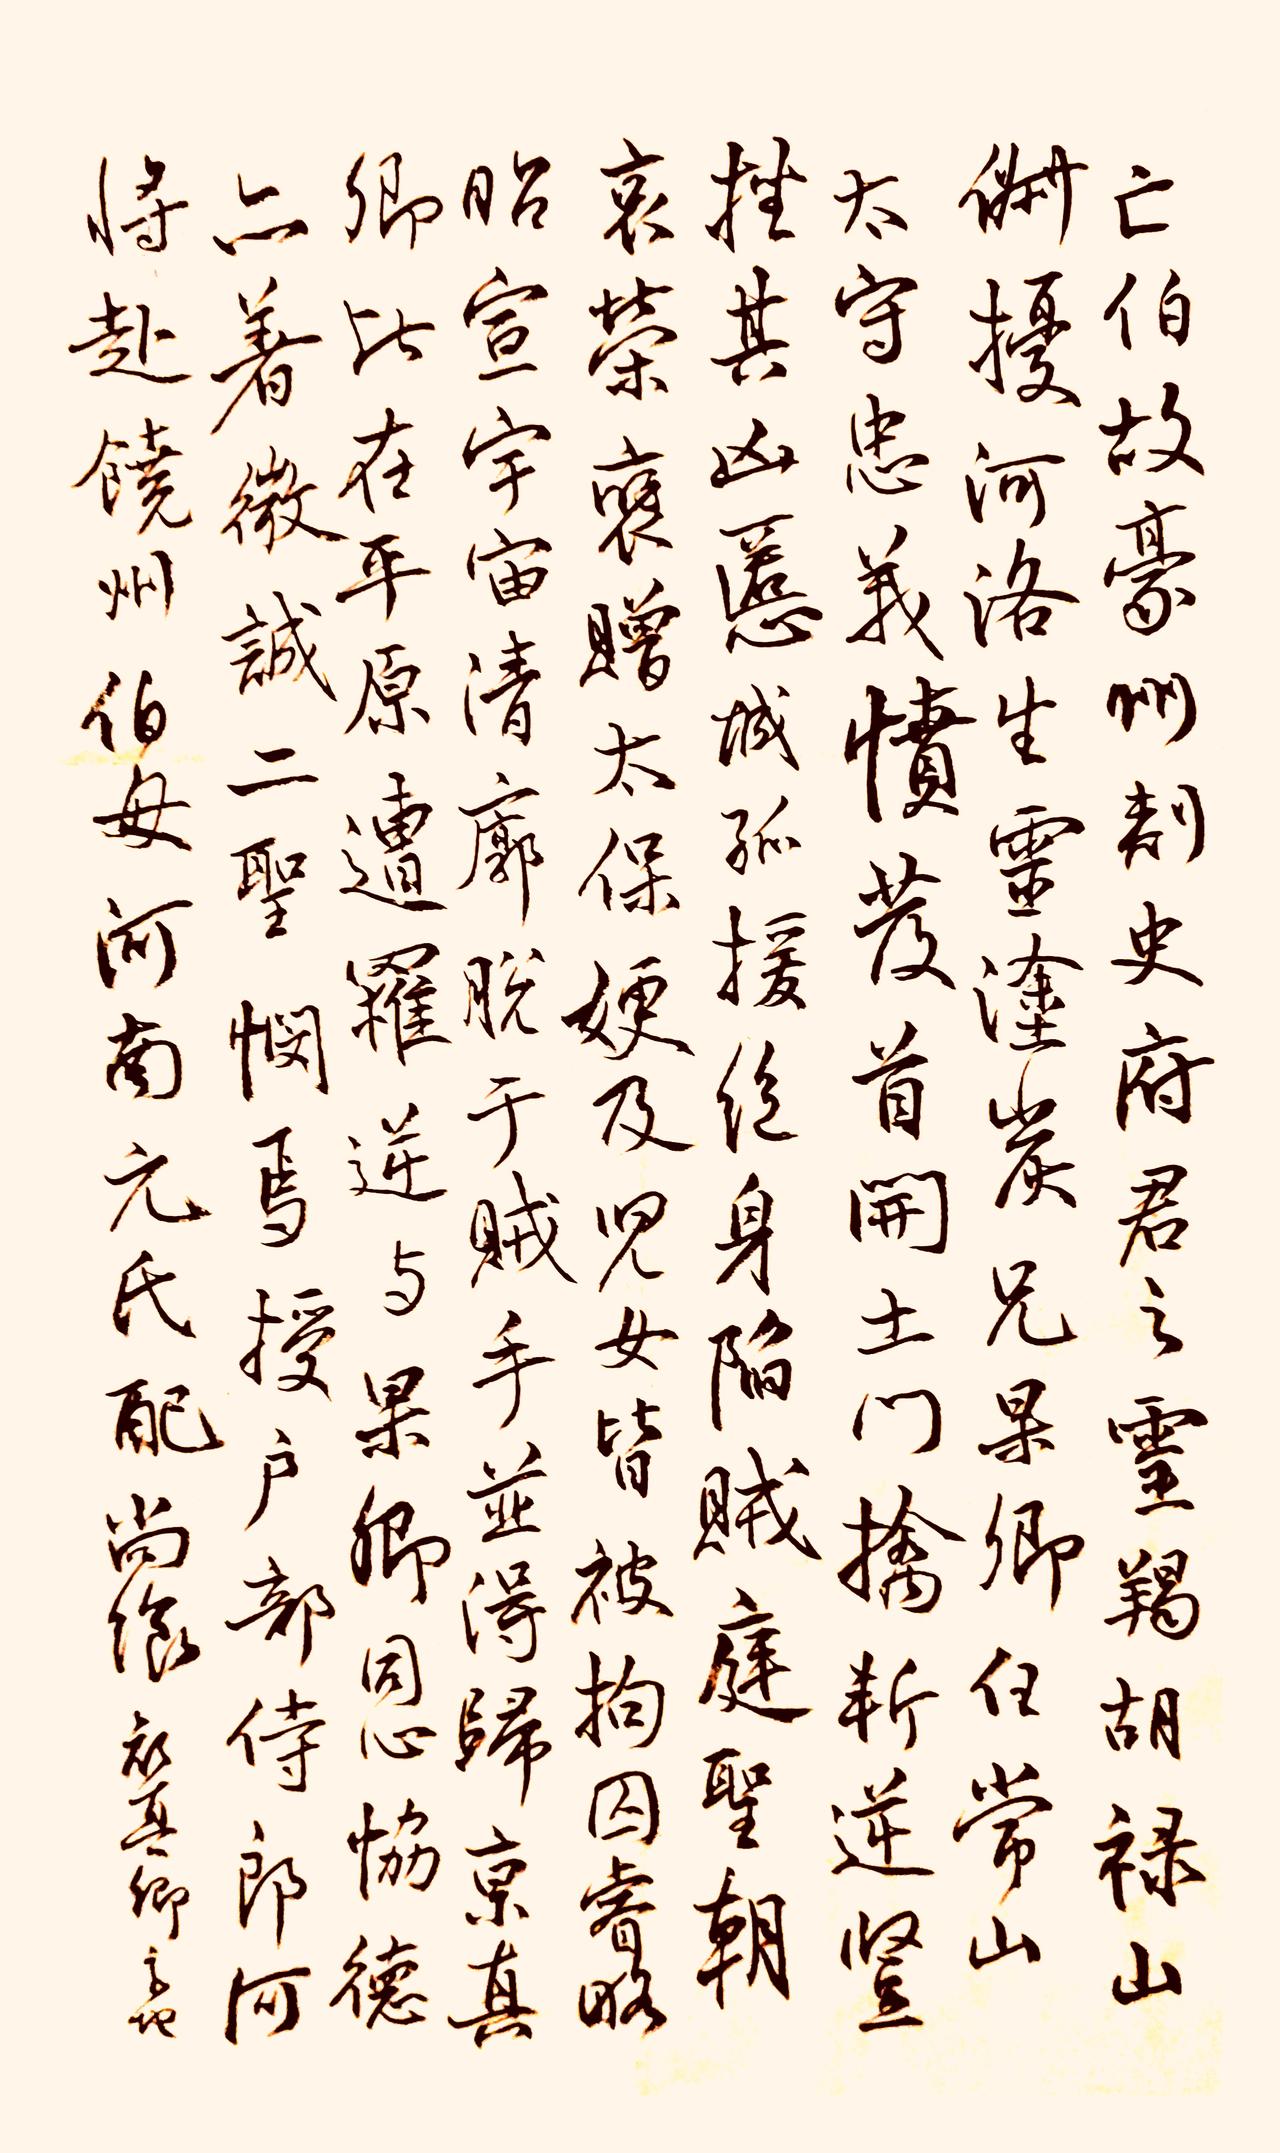 亡伯故豪州刺史府君之靈羯胡祿山
俶擾河洛生靈塗炭兄杲卿任常山
太守忠義憤發首開土門擒斬逆豎
挫其凶慝城孤援絕身陷賊庭聖朝
哀榮褒贈太保嫂及兒女皆被拘囚睿略
昭宣宇宙清廓脫于賊手並得歸京真
卿比在平原遭羅逆與杲卿同心協德
亦著微誠二聖憫焉授戶部侍郎河
將赴饒州伯母河南元氏配尚饗真卿